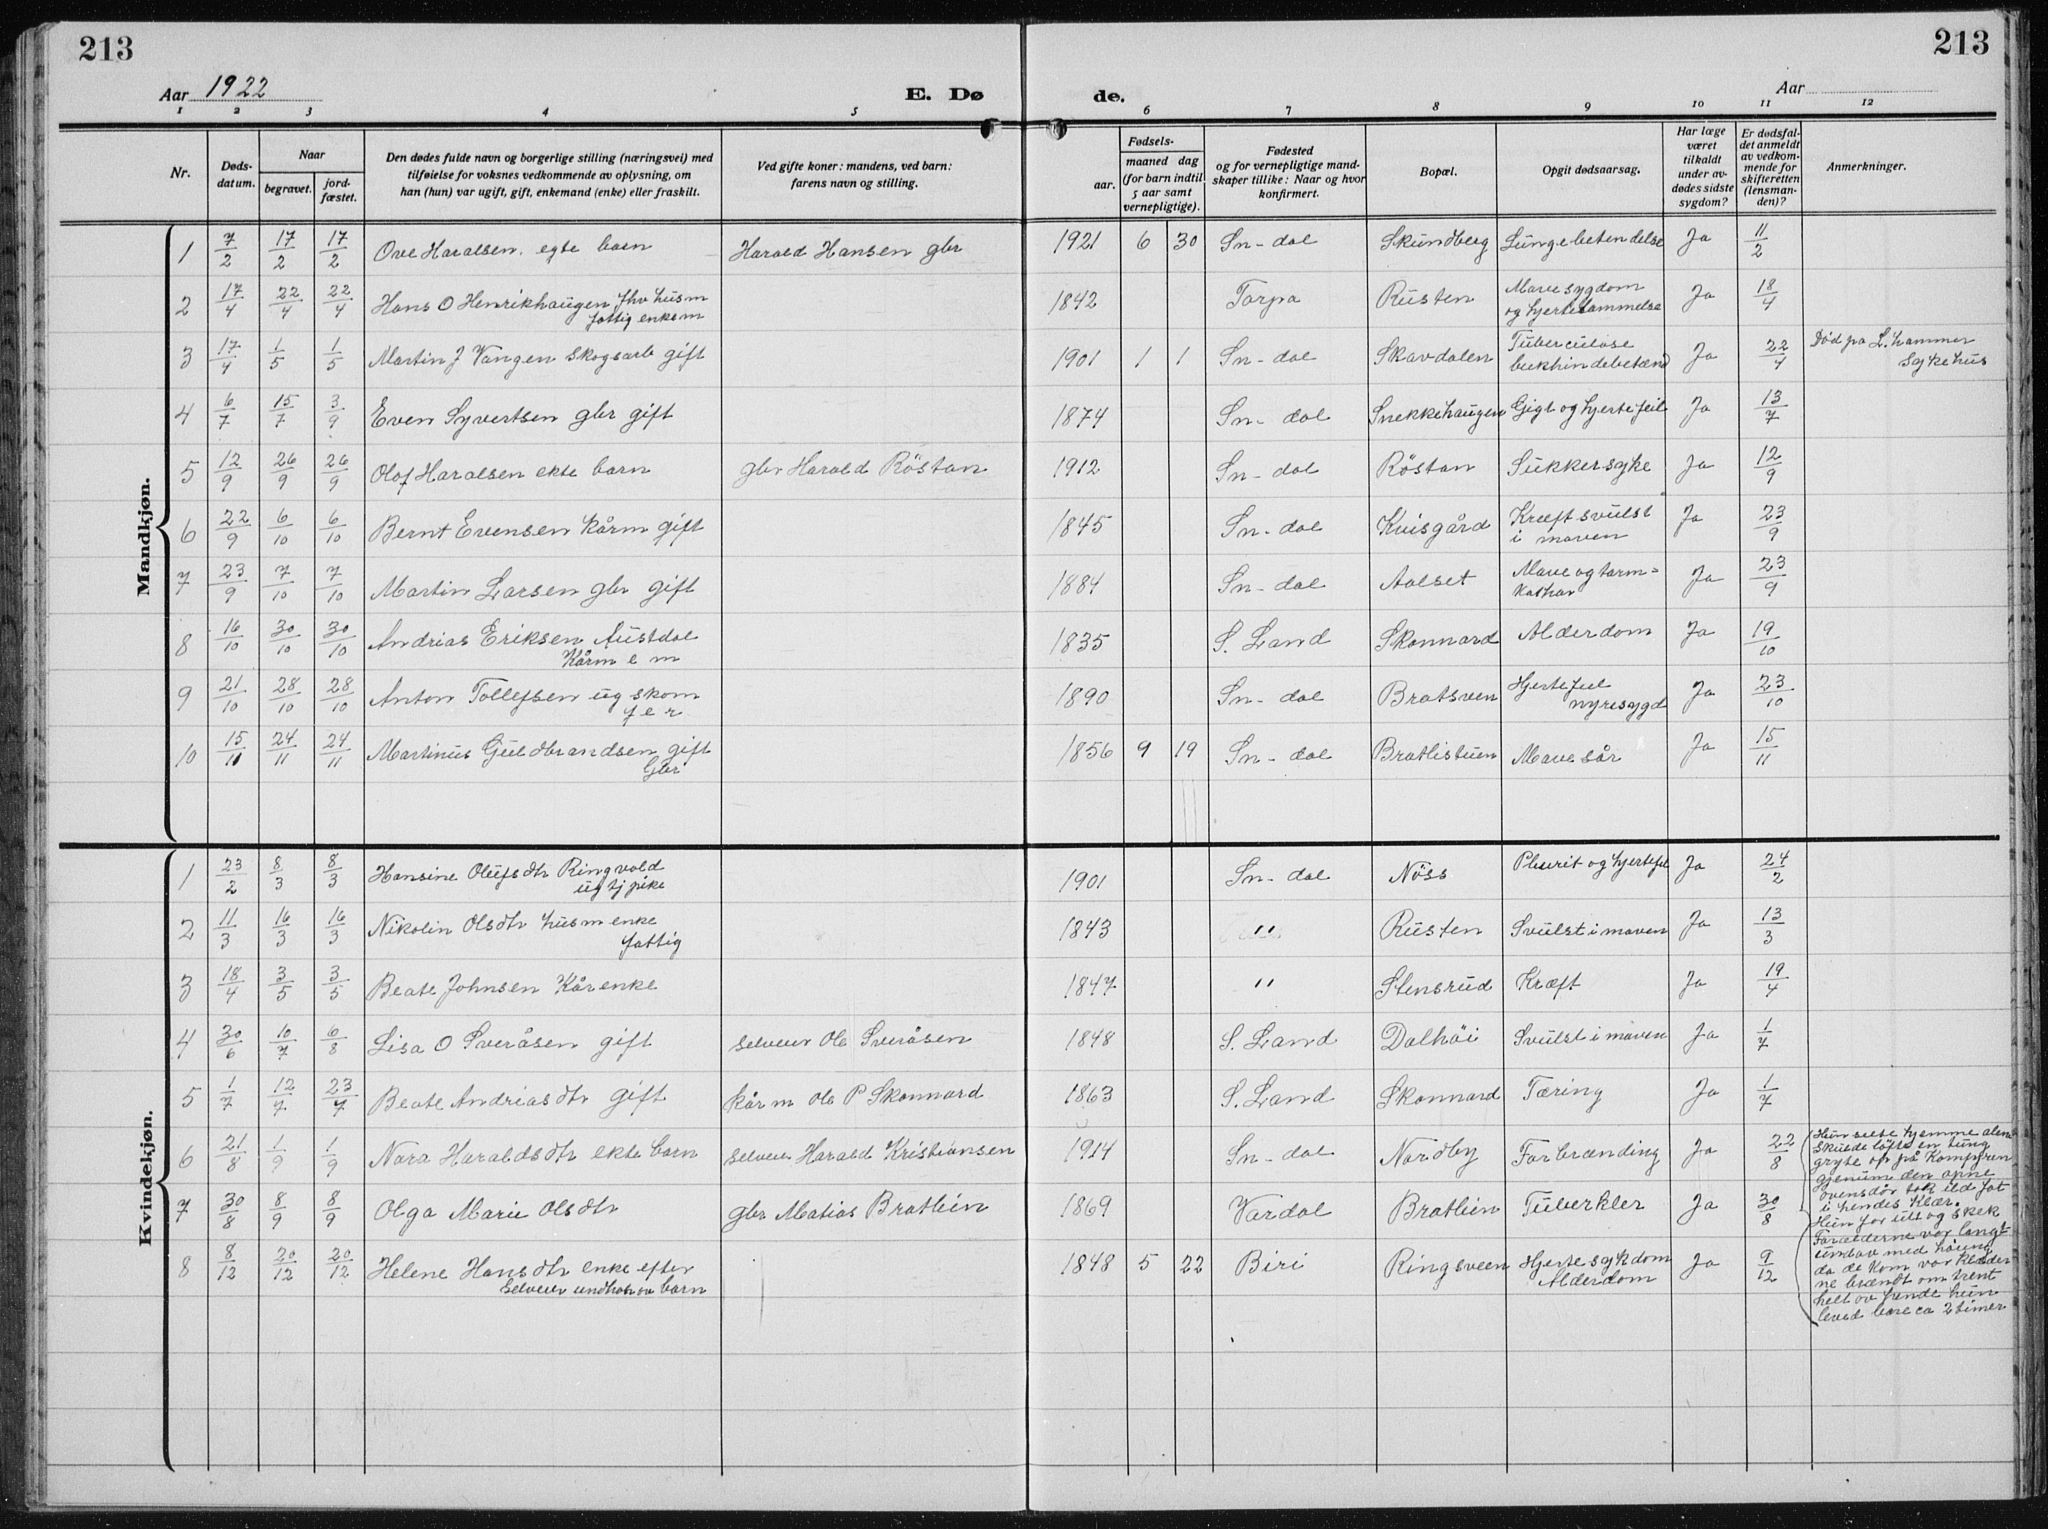 213
213
Aar 1922
E. Dø
de.
Aar
1 2 3 4 5 6 7 8 9 10 11 12
Nr.
Døds-
datum.
Naar
begravet.
jord-
fæstet.
Den dødes fulde navn og borgerlige stilling (næringsvei) med
tilføielse for voksnes vedkommende av oplysning, om
han (hun) var ugift, gift, enkemand (enke) eller fraskilt.
Ved gifte koner: mandens, ved barn:
farens navn og stilling.
Fødsels-
aar.
maaned dag
(for barn indtil
5 aar samt
vernepligtige).
Fødested
og for vernepligtige mand-
skaper tillike: Naar og hvor
konfirmert.
Bopæl.
Opgit dødsaarsag.
Har læge
været
tilkaldt
under av-
dødes sidste
sygdom?
Er dødsfal-
det anmeldt
av vedkom-
mende for
skifteretten
(lensman-
den)?
Anmerkninger.
Mandkjøn.
1 7/2 17/2 17/2 Ove Haralsen. egte barn Harald Hansen gbr 1921 6 30 Sn-dal Skundberg Lungebetendelse Ja 11/2
2 17/4 22/4 22/4 Hans O Henrikhaugen fhv husm 1842 Torpa Rusten Mavesygdom Ja 18/4
fattig enkem og hjertelammelse
3 17/4 1/5 1/5 Martin J Vangen skogsarb gift 1901 1 1 Sn-dal Skavdalen Tuberculøse Ja 22/4 Død pa L.hammer
bukhindebetænd sykehus
4 6/7 15/7 3/9 Even Syvertsen gbr gift 1874 Sn-dal Snekkehaugen Gigt og hjertefeil Ja 13/7
5 12/9 26/9 26/9 Olof Haralsen ekte barn gbr Harald Röstan 1912 Sn-dal Röstan Sukkersyke Ja 12/9
6 22/9 6/10 6/10 Bernt Evensen kårm gift 1845 Sn-dal Kvisgård Kræftsvulst Ja 23/9
i maven
7 23/9 7/10 7/10 Martin Larsen gbr gift 1884 Sn-dal Aalset Mave og tarm= Ja 23/9
kathar
8 16/10 30/10 30/10 Andrias Eriksen Austdal 1835 S. Land Skonnard Alderdom Ja 19/10
Kårm e m
9 21/10 28/10 28/10 Anton Tollefsen ug skom 1890 Sn-dal Bratsven Hjertefeil Ja 23/10
fer nyresygd
10 15/11 24/11 24/11 Martinus Guldbrandsen gift 1856 9 19 Sn-dal Bratlistuen Mavesår Ja 15/11
Gbr
Kvindekjøn.
1 23/2 8/3 8/3 Hansine Olufsdtr Ringvold 1901 Sn-dal Nöss Plurit og hjertefel Ja 24/2
ug tj pike
2 11/3 16/3 16/3 Nikolin Olsdtr husm enke 1843 " Rusten Svulst i maven Ja 13/3
fattig
3 18/4 3/5 3/5 Beate Johnsen Kårenke 1847 " Stensrud Kræft Ja 19/4
4 30/6 10/7 6/8 Lisa O Sveråsen gift selveier Ole Sveråsen 1848 S. Land Dalhöi Svulst i maven Ja 1/7
5 1/7 12/7 23/7 Beate Andriasdtr gift kårm Ole P Skonnard 1863 S. Land Skonnard Tæring Ja 1/7
6 21/8 1/9 1/9 Nora Haraldsdtr ekte barn selveier Harald Kristiansen 1914 Sn-dal Nordby Forbrænding Ja 22/8
7 30/8 8/9 8/9 Olga Marie Olsdtr gbr Matias Bratlien 1869 Vardal Bratlien Tuberkler Ja 30/8
8 8/12 20/12 20/12 Helene Hansdtr enke efter 1848 5 22 Biri Ringsveen Hjertesykdom Ja 9/12
Selveier barn Alderdom
Hun hjemme alene
Skulde löfte en tung
gryte op på Kompyren
gjenum den apne
ovensdör tok ild fat
i hendes Klær.
Hun for ut og skek
Forælderne var langt
undav med höiung
da de kom var klæder
ne brændt om trent
helt ov hende hun
levde bare ca 2 timer